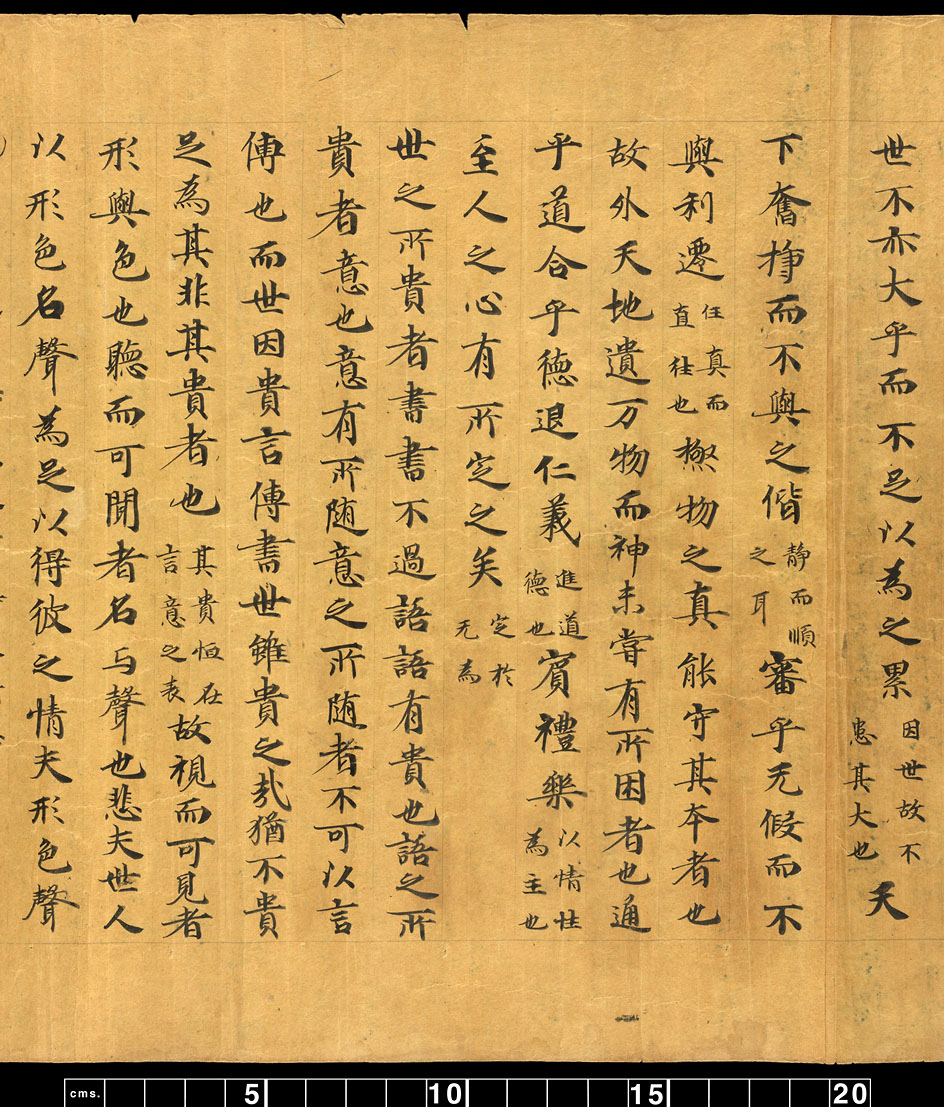 世不亦大乎而不足以為之累因世故不患其大也天
下奮棅而不與之偕静而順之耳審乎无假而不
與利遷任真而直往也極物之真能守其本者也
故外天地遺万物而神未嘗有所困者也通
乎道合乎德退仁義進道德也賓禮樂以情性為主也
至人之心有所定之矣定於无為
世之所貴者書書不過語語有貴也語之所
貴者意也意有所随意之所随者不可以言
傳也而世因貴言傳書世雖貴之哉猶不貴
足為其非其貴者也其貴恒在言意之表故視而可見者
形與色也聽而可聞者名与聲也悲夫世人
以形色名聲為足以得彼之情夫形色聲
cms. 5 10 15 20